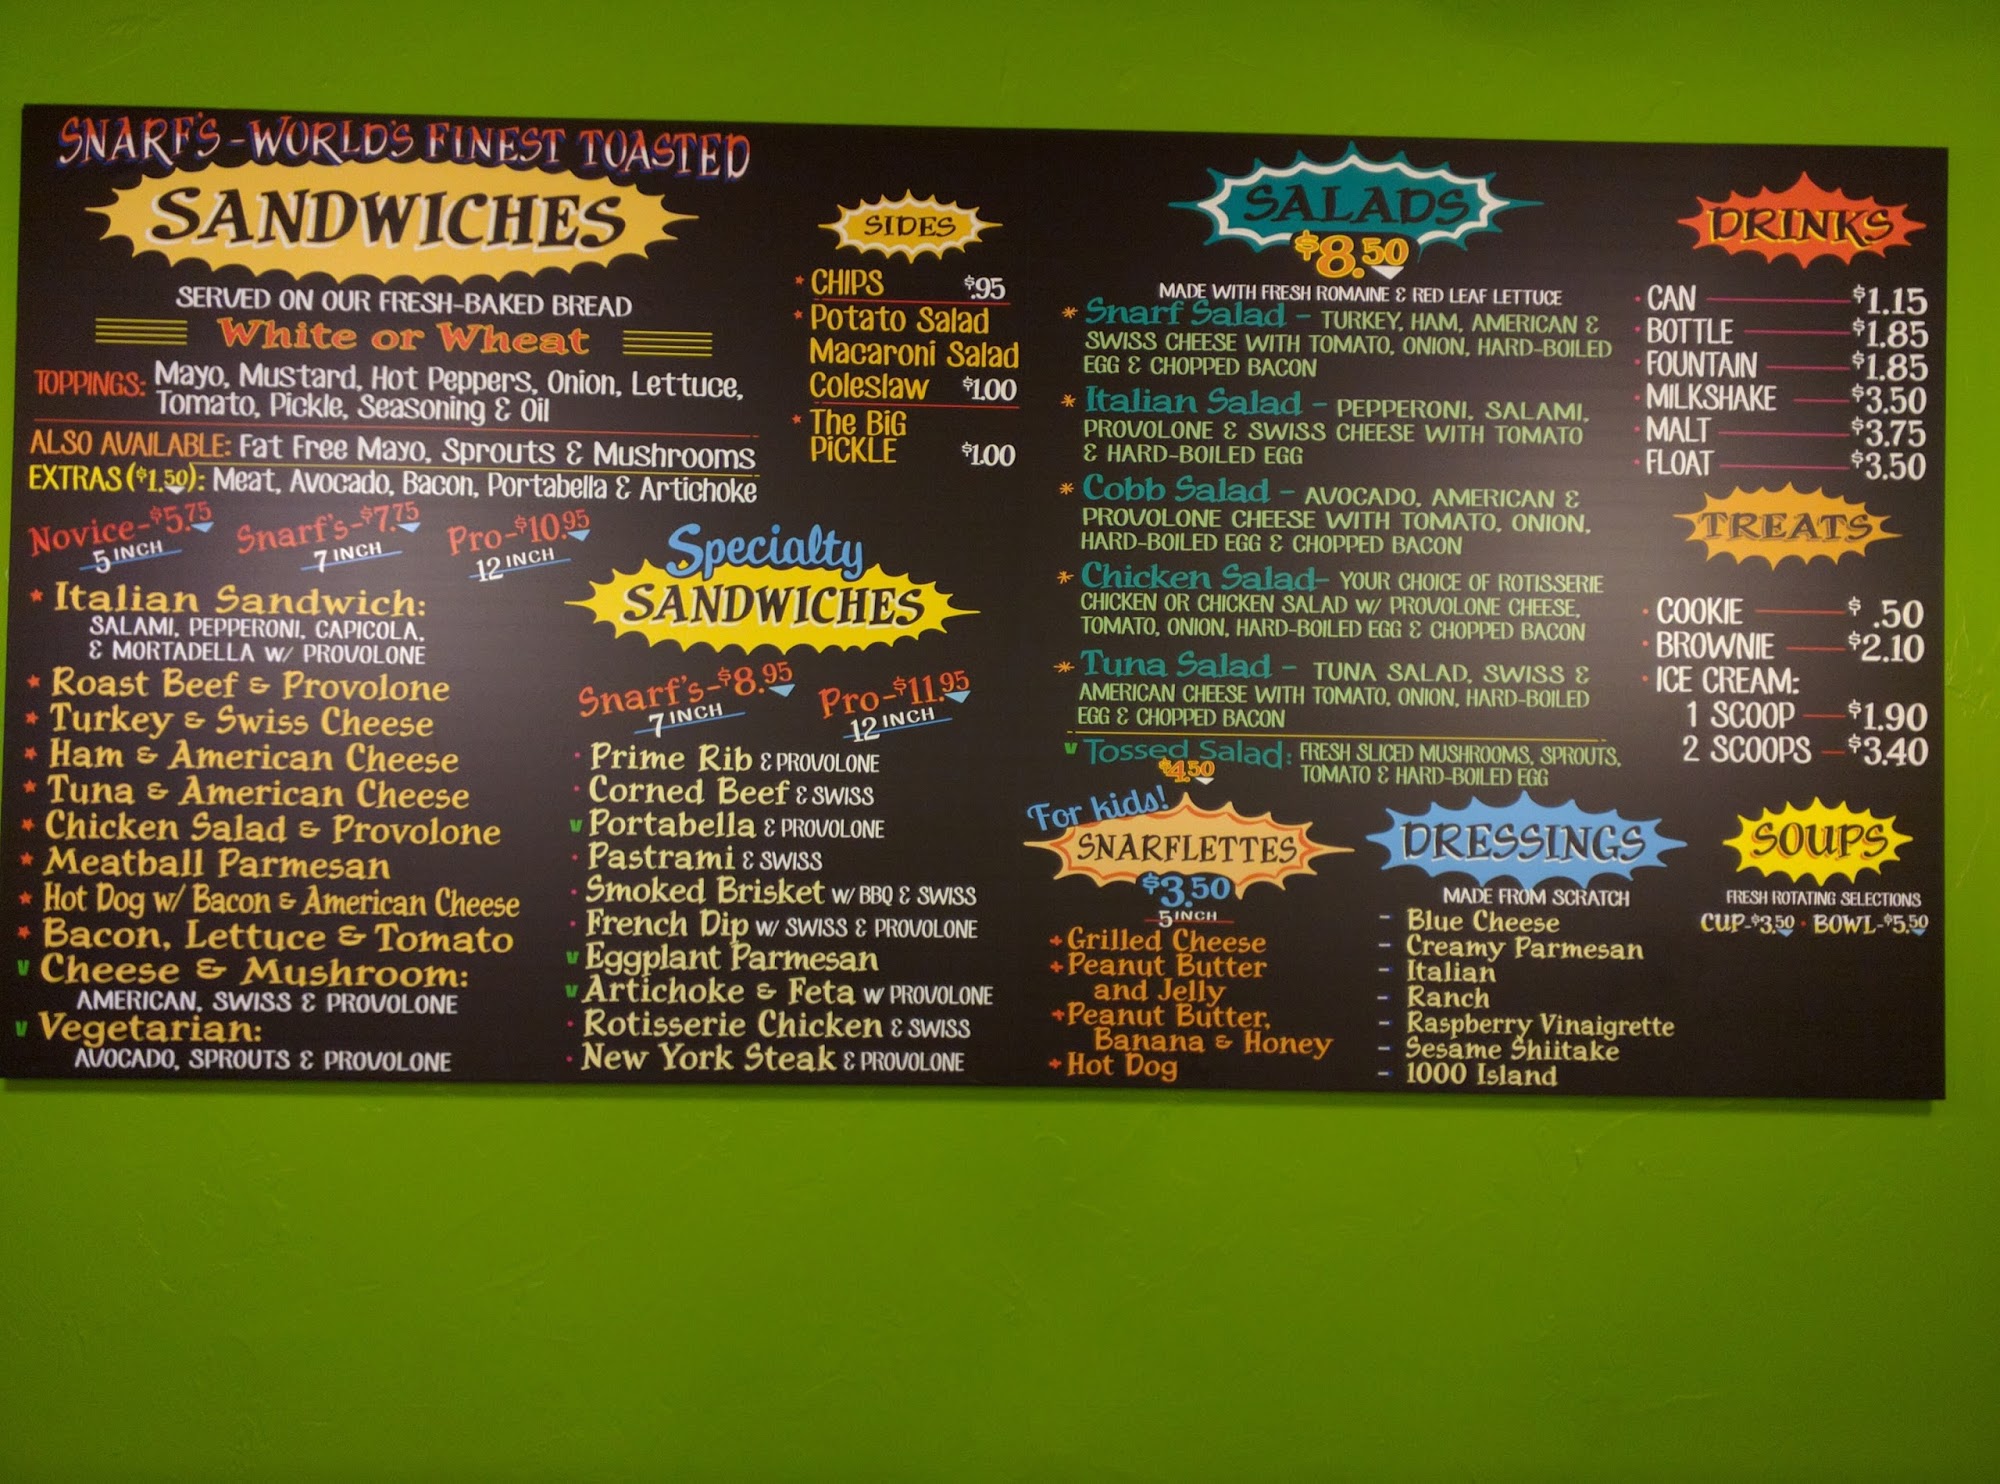 SNARF'S - WORLD'S FINEST TOASTED
SANDWICHES
SERVED ON OUR FRESH-BAKED BREAD
White or Wheat
TOPPINGS: Mayo, Mustard, Hot Peppers, Onion, Lettuce,
Tomato, Pickle, Seasoning & Oil
ALSO AVAILABLE: Fat Free Mayo, Sprouts & Mushrooms
EXTRAS ($1.50): Meat, Avocado, Bacon, Portabella & Artichoke
Novice-$5.75
5 INCH
Snarf's-$7.75
7 INCH
Pro-$10.95
12 INCH
* Italian Sandwich:
SALAMI, PEPPERONI, CAPICOLA,
& MORTADELLA W/ PROVOLONE
* Roast Beef & Provolone
* Turkey & Swiss Cheese
* Ham & American Cheese
* Tuna & American Cheese
* Chicken Salad & Provolone
* Meatball Parmesan
* Hot Dog w/ Bacon & American Cheese
* Bacon, Lettuce & Tomato
V Cheese & Mushroom:
AMERICAN, SWISS & PROVOLONE
V Vegetarian:
AVOCADO, SPROUTS & PROVOLONE
Specialty
SANDWICHES
Snarf's-$8.95
7 INCH
Pro-$11.95
12 INCH
· Prime Rib & PROVOLONE
· Corned Beef & SWISS
V Portabella & PROVOLONE
· Pastrami & SWISS
· Smoked Brisket W/ BBQ & SWISS
· French Dip W/ SWISS & PROVOLONE
V Eggplant Parmesan
V Artichoke & Feta W PROVOLONE
· Rotisserie Chicken & SWISS
· New York Steak & PROVOLONE
SIDES
* CHIPS $.95
* Potato Salad
Macaroni Salad
Coleslaw $1.00
* The BiG
PiCKLE $1.00
SALADS
$8.50
MADE WITH FRESH ROMAINE & RED LEAF LETTUCE
* Snarf Salad - TURKEY, HAM, AMERICAN &
SWISS CHEESE WITH TOMATO, ONION, HARD-BOILED
EGG & CHOPPED BACON
* Italian Salad - PEPPERONI, SALAMI,
PROVOLONE & SWISS CHEESE WITH TOMATO
& HARD-BOILED EGG
* Cobb Salad - AVOCADO, AMERICAN &
PROVOLONE CHEESE WITH TOMATO, ONION,
HARD-BOILED EGG & CHOPPED BACON
* Chicken Salad- YOUR CHOICE OF ROTISSERIE
CHICKEN OR CHICKEN SALAD W/ PROVOLONE CHEESE,
TOMATO, ONION, HARD-BOILED EGG & CHOPPED BACON
* Tuna Salad - TUNA SALAD, SWISS &
AMERICAN CHEESE WITH TOMATO, ONION, HARD-BOILED
EGG & CHOPPED BACON
V Tossed Salad: FRESH SLICED MUSHROOMS, SPROUTS,
$4.50 TOMATO & HARD-BOILED EGG
For kids!
SNARFLETTES
$3.50
5 INCH
+ Grilled Cheese
+ Peanut Butter
and Jelly
+ Peanut Butter,
Banana & Honey
+ Hot Dog
DRESSINGS
MADE FROM SCRATCH
- Blue Cheese
- Creamy Parmesan
- Italian
- Ranch
- Raspberry Vinaigrette
- Sesame Shiitake
- 1000 Island
DRINKS
· CAN $1.15
· BOTTLE $1.85
· FOUNTAIN $1.85
· MILKSHAKE $3.50
· MALT $3.75
· FLOAT $3.50
TREATS
· COOKIE $ .50
· BROWNIE $2.10
· ICE CREAM:
1 SCOOP $1.90
2 SCOOPS $3.40
SOUPS
FRESH ROTATING SELECTIONS
CUP-$3.50 · BOWL-$5.50